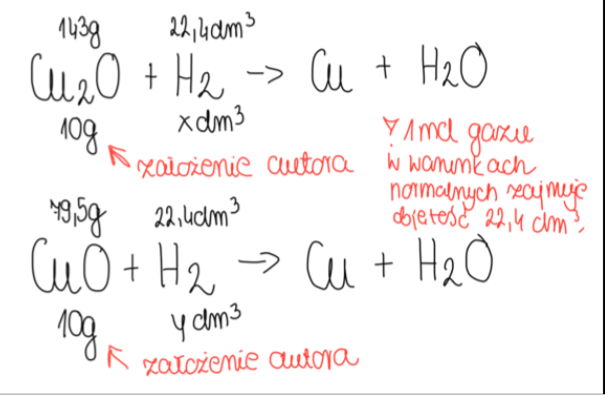 143g 22,4dm³
Cu₂O + H₂ → Cu + H₂O
10g xdm³
założenie autora
1 mol gazu
w warunkach
normalnych zajmuje
objętość 22,4 dm³.
79,5g 22,4dm³
CuO + H₂ → Cu + H₂O
10g ydm³
założenie autora